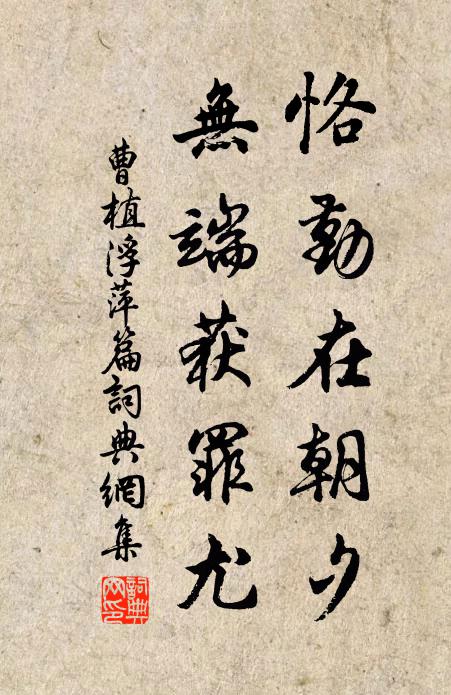 恪勤在朝夕
無端获罪尤
曹植浮萍篇詞典網集
詞典网印